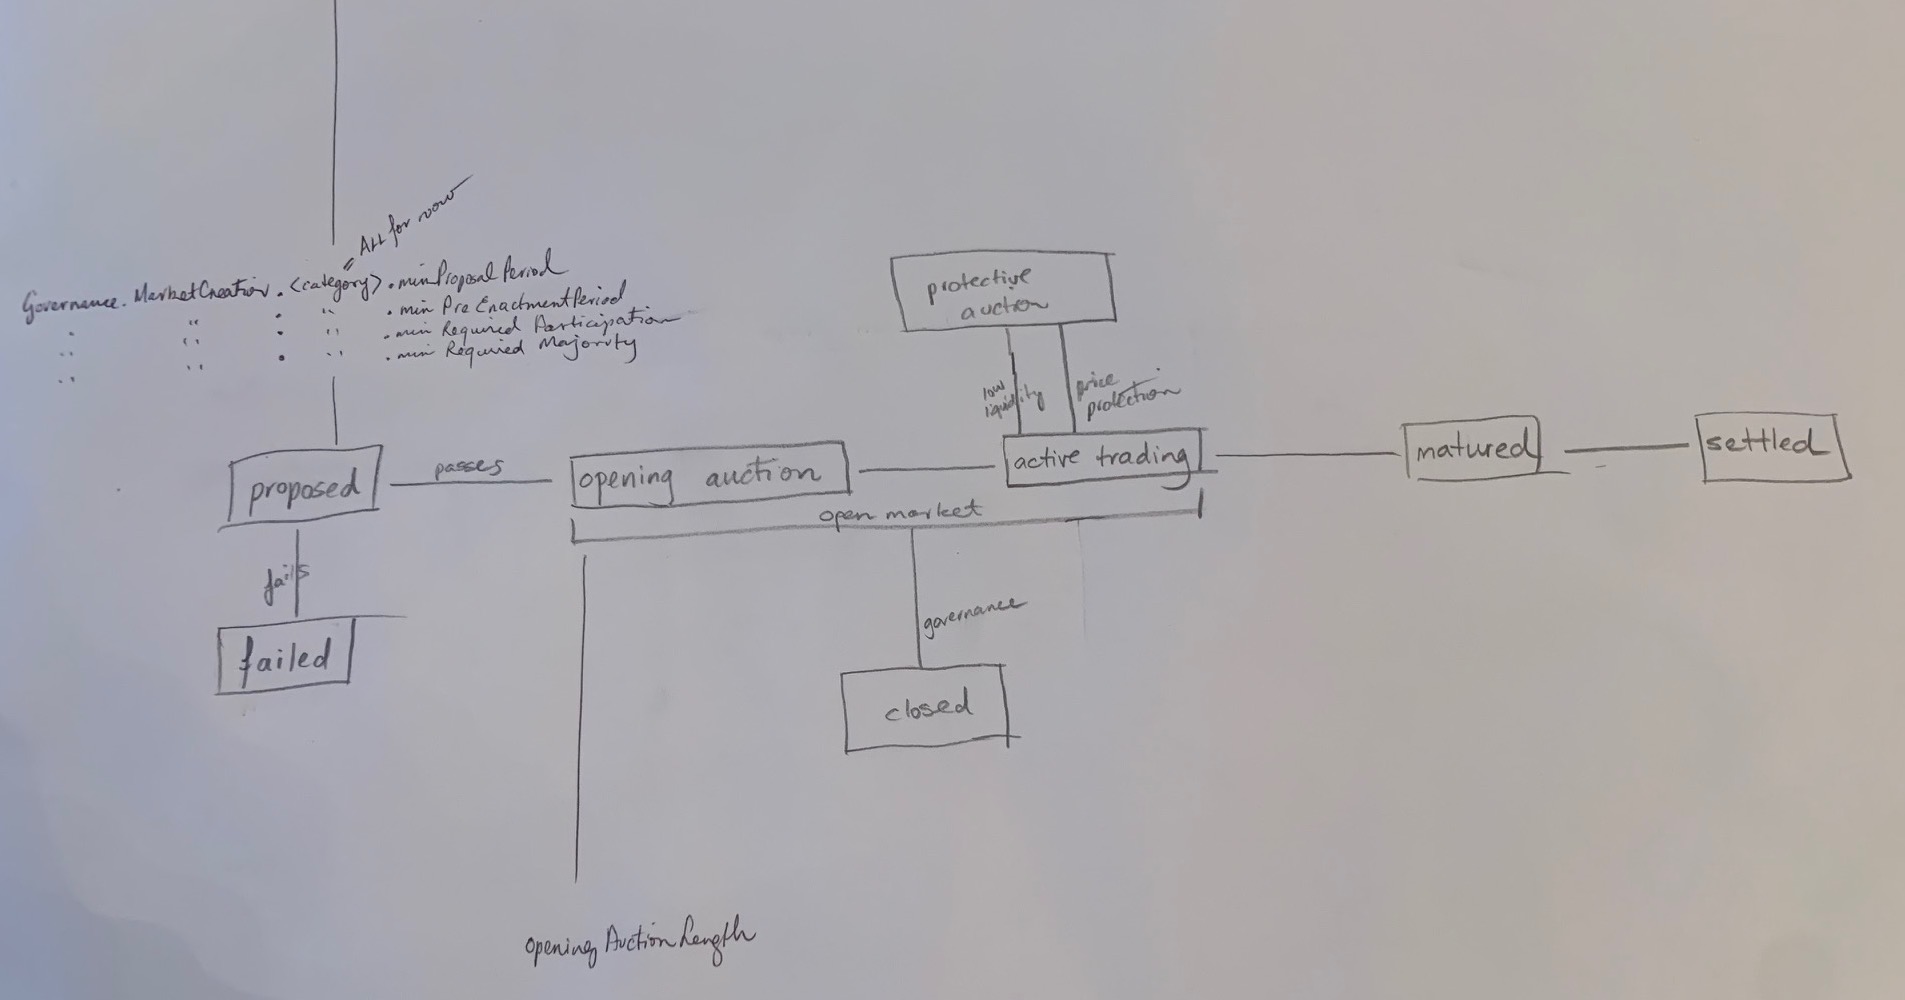 All for now
Governance. MarketCreation. <category>. minProposalPeriod
" " . " . min PreEnactmentPeriod
" " . " . min Required Participation
" " . " . min Required Majority
protective
auction
low
liquidity
price
protection
proposed
passes
opening auction
active trading
matured
settled
open market
fails
governance
failed
closed
Opening Auction Length